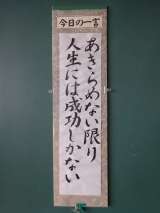 今日の一言
あきらめない限り
人生には成功しかない